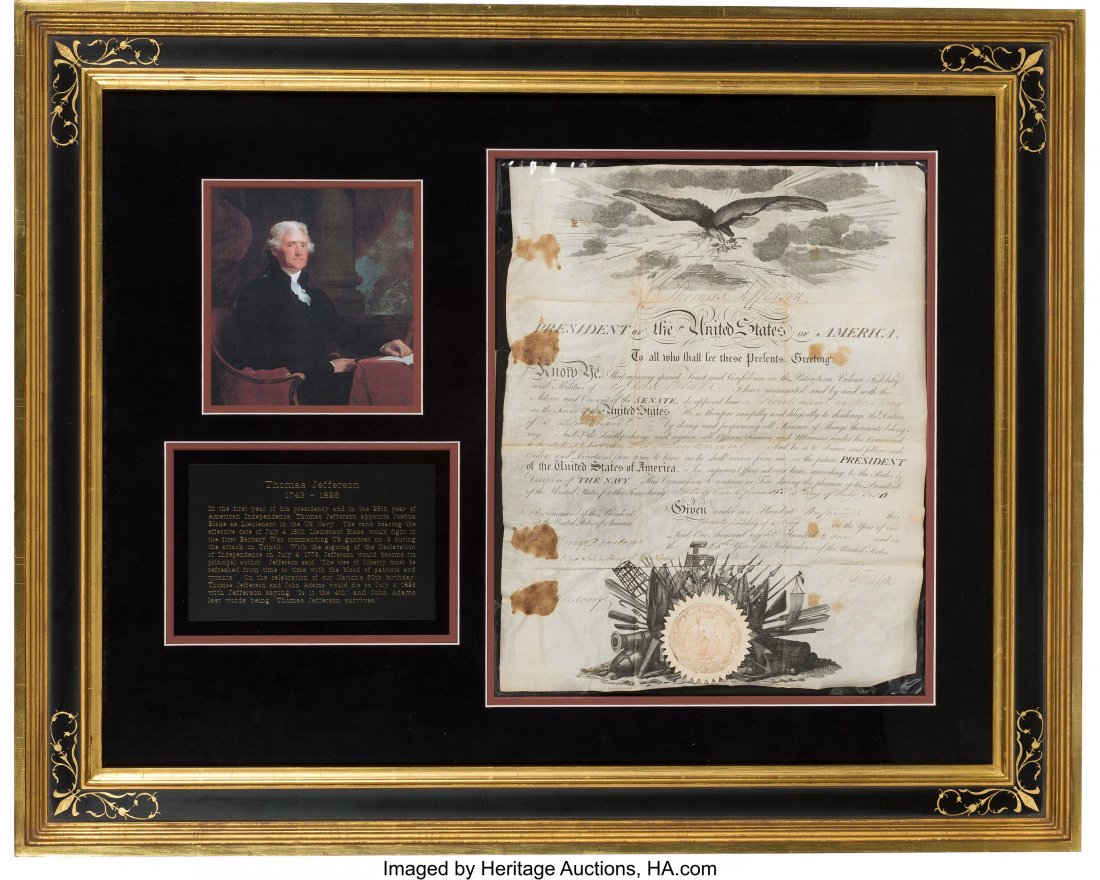 Thomas Jefferson
1743 - 1826
In the first year of his presidency and in the 26th year of
American Independence, Thomas Jefferson appoints Joshua
Blake as Lieutenant in the US Navy. The rank bearing the
effective date of July 4, 1800. Lieutenant Blake, would fight in
the first Barbary War commanding US gunboat no. 3 during
the attack on Tripoli. With the signing of the Declaration
of Independence on July 4, 1776, Jefferson would become its
principal author. Jefferson said, 'The tree of Liberty must be
refreshed from time to time with the blood of patriots and
tyrants.' On the celebration of our Nation's 50th birthday,
Thomas Jefferson and John Adams would die on July 4, 1826
with Jefferson saying, 'Is it the 4th' and John Adams
last words being 'Thomas Jefferson survives.'
Thomas Jefferson
PRESIDENT OF the United States OF AMERICA.
To all who shall see these Presents, Greeting:
Know Ye, That reposing special Trust and Confidence in the Patriotism, Valour, Fidelity
and Abilities of I have nominated, and by and with the
Advice and Consent of the SENATE, do appoint him
in the Service of the United States. He is therefore carefully and diligently to discharge the Duties
of by doing and performing all Manner of Things thereunto belong-
ing. And I do strictly charge and require all Officers, Seamen and Marines under his Command
And he is to observe and follow such
Orders and Directions from time to time as he shall receive from me or the future PRESIDENT
of the United States of America, or his superior Officer set over him, according to the Rules &
Discipline of THE NAVY. This Commission to continue in Force during the pleasure of the President
of the United States for the time being
Given under my Hand at this
By Command of the President
of the United States of America in the Year of our
Lord One Thousand eight Hundred & one and in
the Year of the Independence of the United States.
Imaged by Heritage Auctions, HA.com